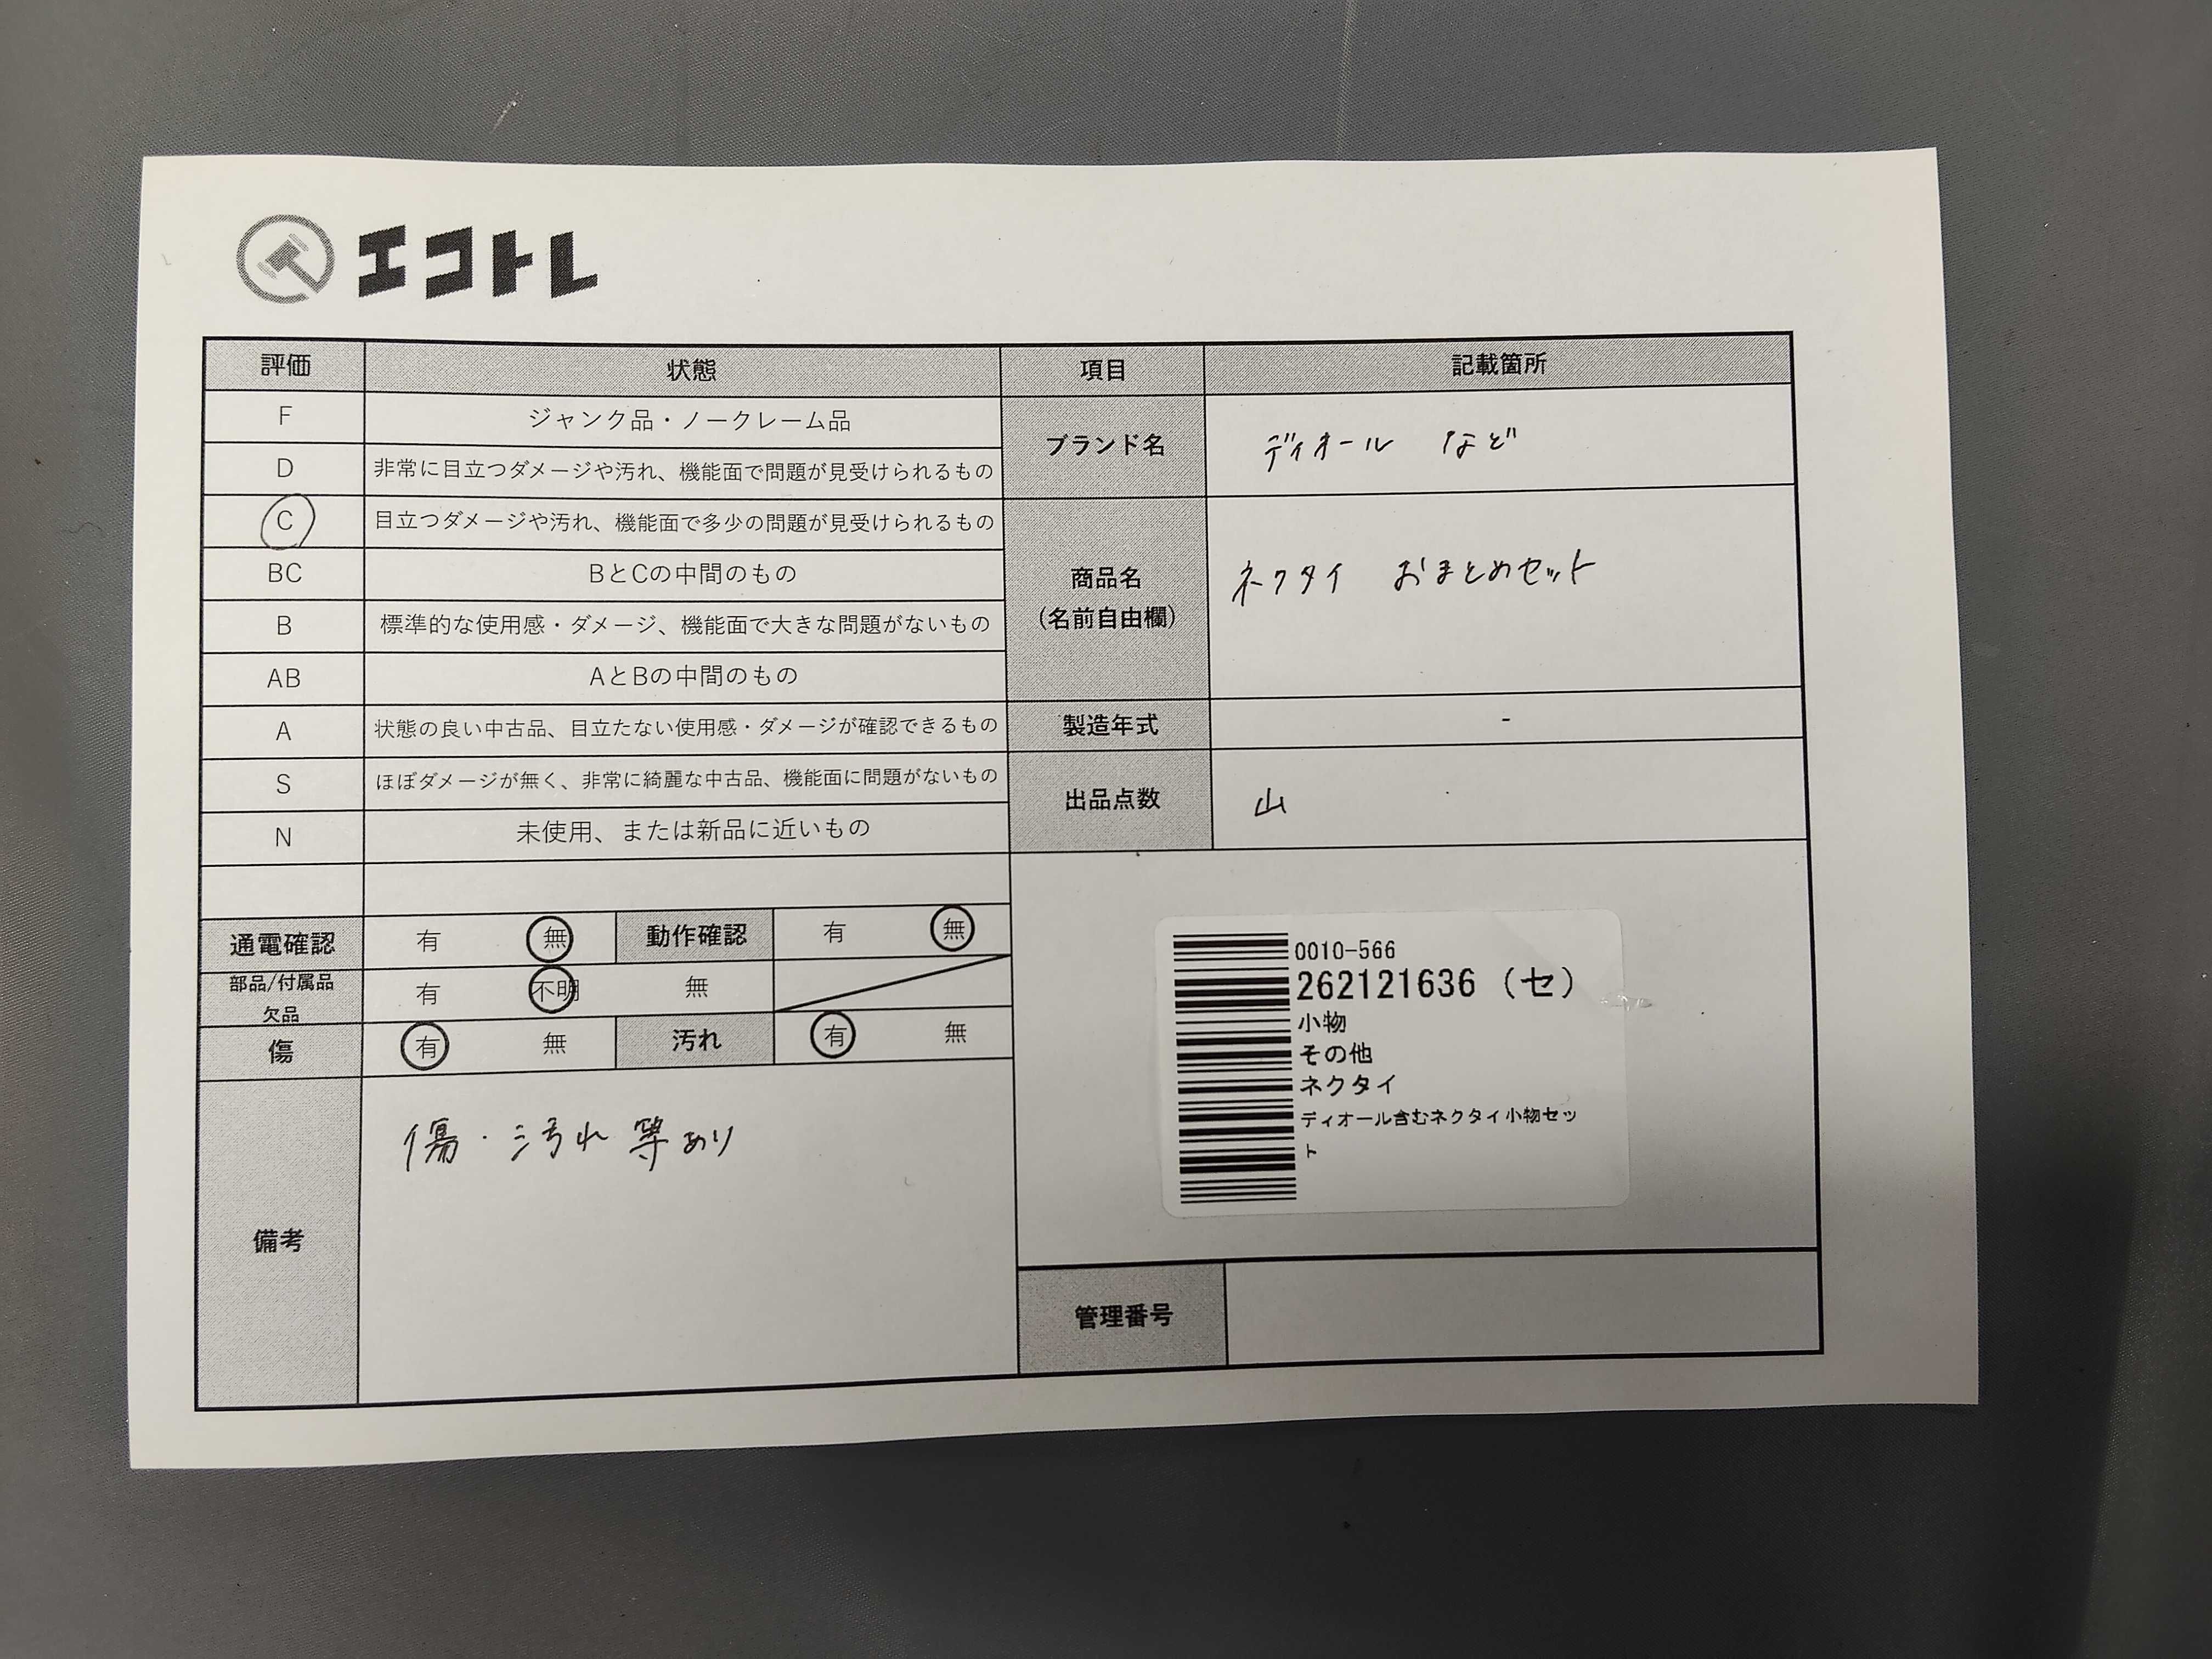 エコトレ
評価 状態 項目 記載箇所
F ジャンク品・ノークレーム品
D 非常に目立つダメージや汚れ、機能面で問題が見受けられるもの
C 目立つダメージや汚れ、機能面で多少の問題が見受けられるもの
BC BとCの中間のもの
B 標準的な使用感・ダメージ、機能面で大きな問題がないもの
AB AとBの中間のもの
A 状態の良い中古品、目立たない使用感・ダメージが確認できるもの
S ほぼダメージが無く、非常に綺麗な中古品、機能面に問題がないもの
N 未使用、または新品に近いもの
ブランド名 ディオール など
商品名
(名前自由欄)
ネクタイ おまとめセット
製造年式 -
出品点数 山
通電確認 有 無 動作確認 有 無
部品/付属品
欠品
有 不明 無
傷 有 無 汚れ 有 無
備考
傷・汚れ等あり
0010-566
262121636 (セ)
小物
その他
ネクタイ
ディオール含むネクタイ小物セッ
ト
管理番号